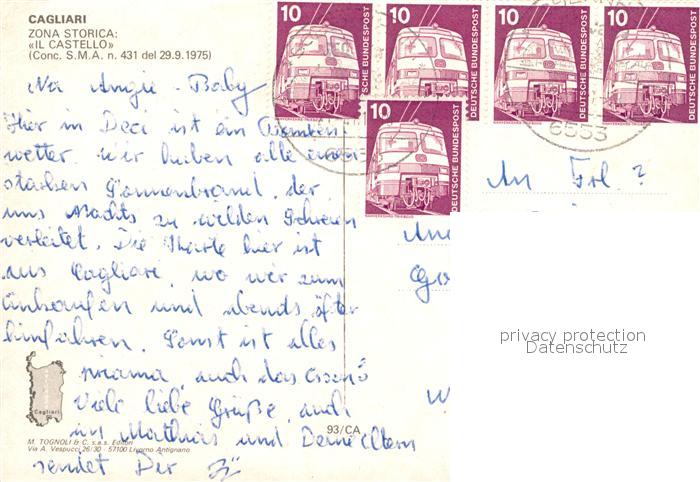 CAGLIARI
ZONA STORICA:
«IL CASTELLO»
(Conc. S.M.A. n. 431 del 29.9.1975)
10 DEUTSCHE BUNDESPOST
10 DEUTSCHE BUNDESPOST
10 DEUTSCHE BUNDESPOST
10 DEUTSCHE BUNDESPOST
10 DEUTSCHE BUNDESPOST
6553
Na Angie-Baby
Hier in Deci ist ein
wetter. Wir haben alle einen
starken Sonnenbrand, der
uns Nachts zu wilden Schreien
verleitet. Die Karte hier ist
aus Cagliari, wo wir zum
einkaufen und abends öfter
hinfahren. Sonst ist alles
prima, auch das Essen
Viele liebe Grüße, auch
an Mathias und Deine Eltern
sendet Dir
An Frl. ?
privacy protection
Datenschutz
Cagliari
93/CA
M. TOGNOLI & C. s.a.s. Editori
Via A. Vespucci 26/30 - 57100 Livorno Antignano